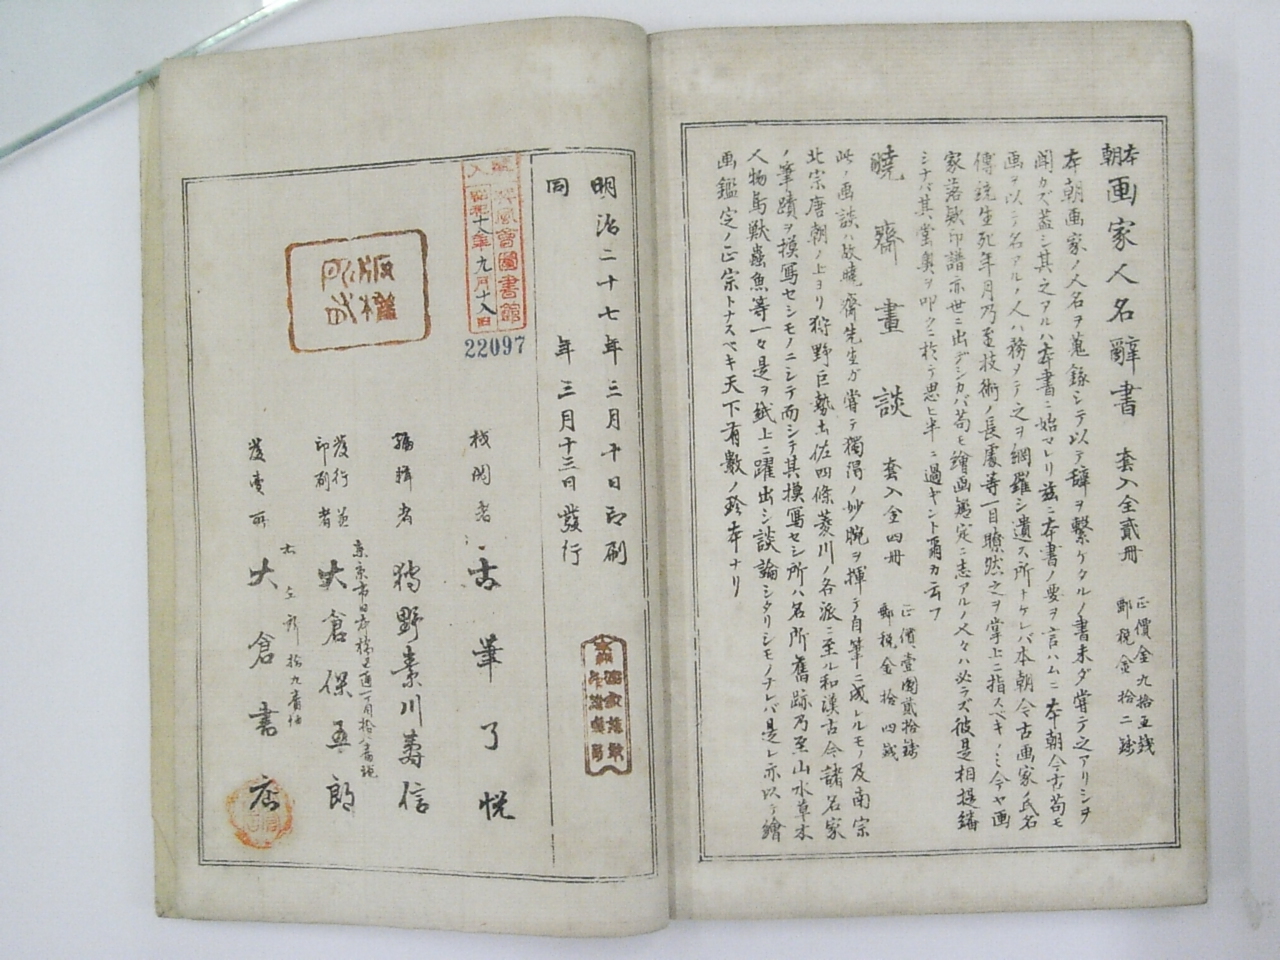 本朝画家人名辭書 套入全貳冊 正價金九拾五錢 郵税金拾二錢
本朝画家ノ人名ヲ蒐錄シテ以テ辞ヲ繋ケタルノ書未ダ嘗テ之アリシヲ
聞カズ蓋シ其之アルハ本書ニ始マレリ茲ニ本書ノ要ヲ言ハムニ本朝今古苟モ
画ヲ以テ名アルノ人ハ務メテ之ヲ網羅シ遺ス所トケレバ本朝今古画家ノ氏名
傳統生死年月乃至技術ノ長處等一目瞭然之ヲ掌上ニ指スベキノミ今ヤ画
家落欵印譜亦世ニ出デシカバ苟モ繪画鑑定ニ志アルノ人々ハ必ラズ彼是相提
シナバ其堂奥ヲ叩クニ於テ思ヒ半ニ過ギント爾カ云フ
曉齋畫談 套入全四冊 正價壹圓貳拾錢 郵税金拾四錢
此ノ画談ハ故曉齋先生ガ嘗テ獨得ノ妙腕ヲ揮テ自筆ニ成レルモノ及南宗
北宗唐朝ノ上ヨリ狩野巨勢土佐四條菱川ノ各派ニ至ル和漢古今諸名家
ノ筆蹟ヲ摸寫セシモノニシテ而シテ其摸寫セシ所ハ名所舊跡乃至山水草木
人物鳥獣蟲魚等一々是ヲ紙上ニ躍出シ談論シタリシモノナレバ是レ亦以テ繪
画鑑定ノ正宗トナスベキ天下有數ノ珍本ナリ
明治二十七年三月十日印刷
同 年三月十三日發行
圖書館
昭和十八年九月十八日
22097
版權所有
校閲者 古筆了悦
編輯者 狩野素川壽信
發行並印刷者 大倉保五郎
東京市日本橋區通一丁目拾八番地
發賣所 大倉書店